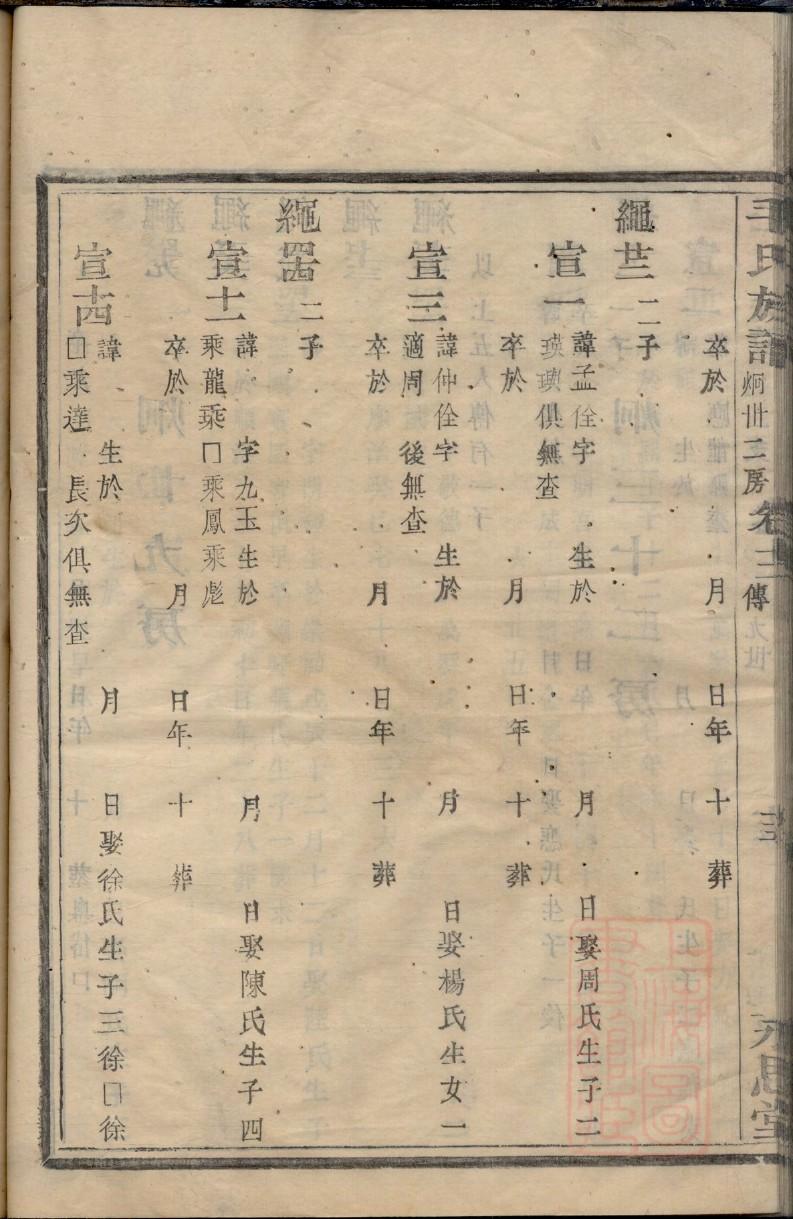 毛氏族譜 炯卅二房 卷十三 傳 三 永思堂
卒於 月 日年 十 葬
繩芏 二子
宣一 諱孟佺字 生於 月 日娶周氏生子二
璵璵俱無查
卒於 月 日年 十 葬
宣三 諱仲佺字 生於 月 日娶楊氏生女一
適周 後無查
卒於 月 日年 十 葬
繩罟 二子
宣十一 諱 字九玉生於 月 日娶陳氏生子四
乘龍乘囗乘鳳乘彪
卒於 月 日年 十 葬
宣十四 諱 生於 月 日娶徐氏生子三徐囗徐
囗乘達 長次俱無查